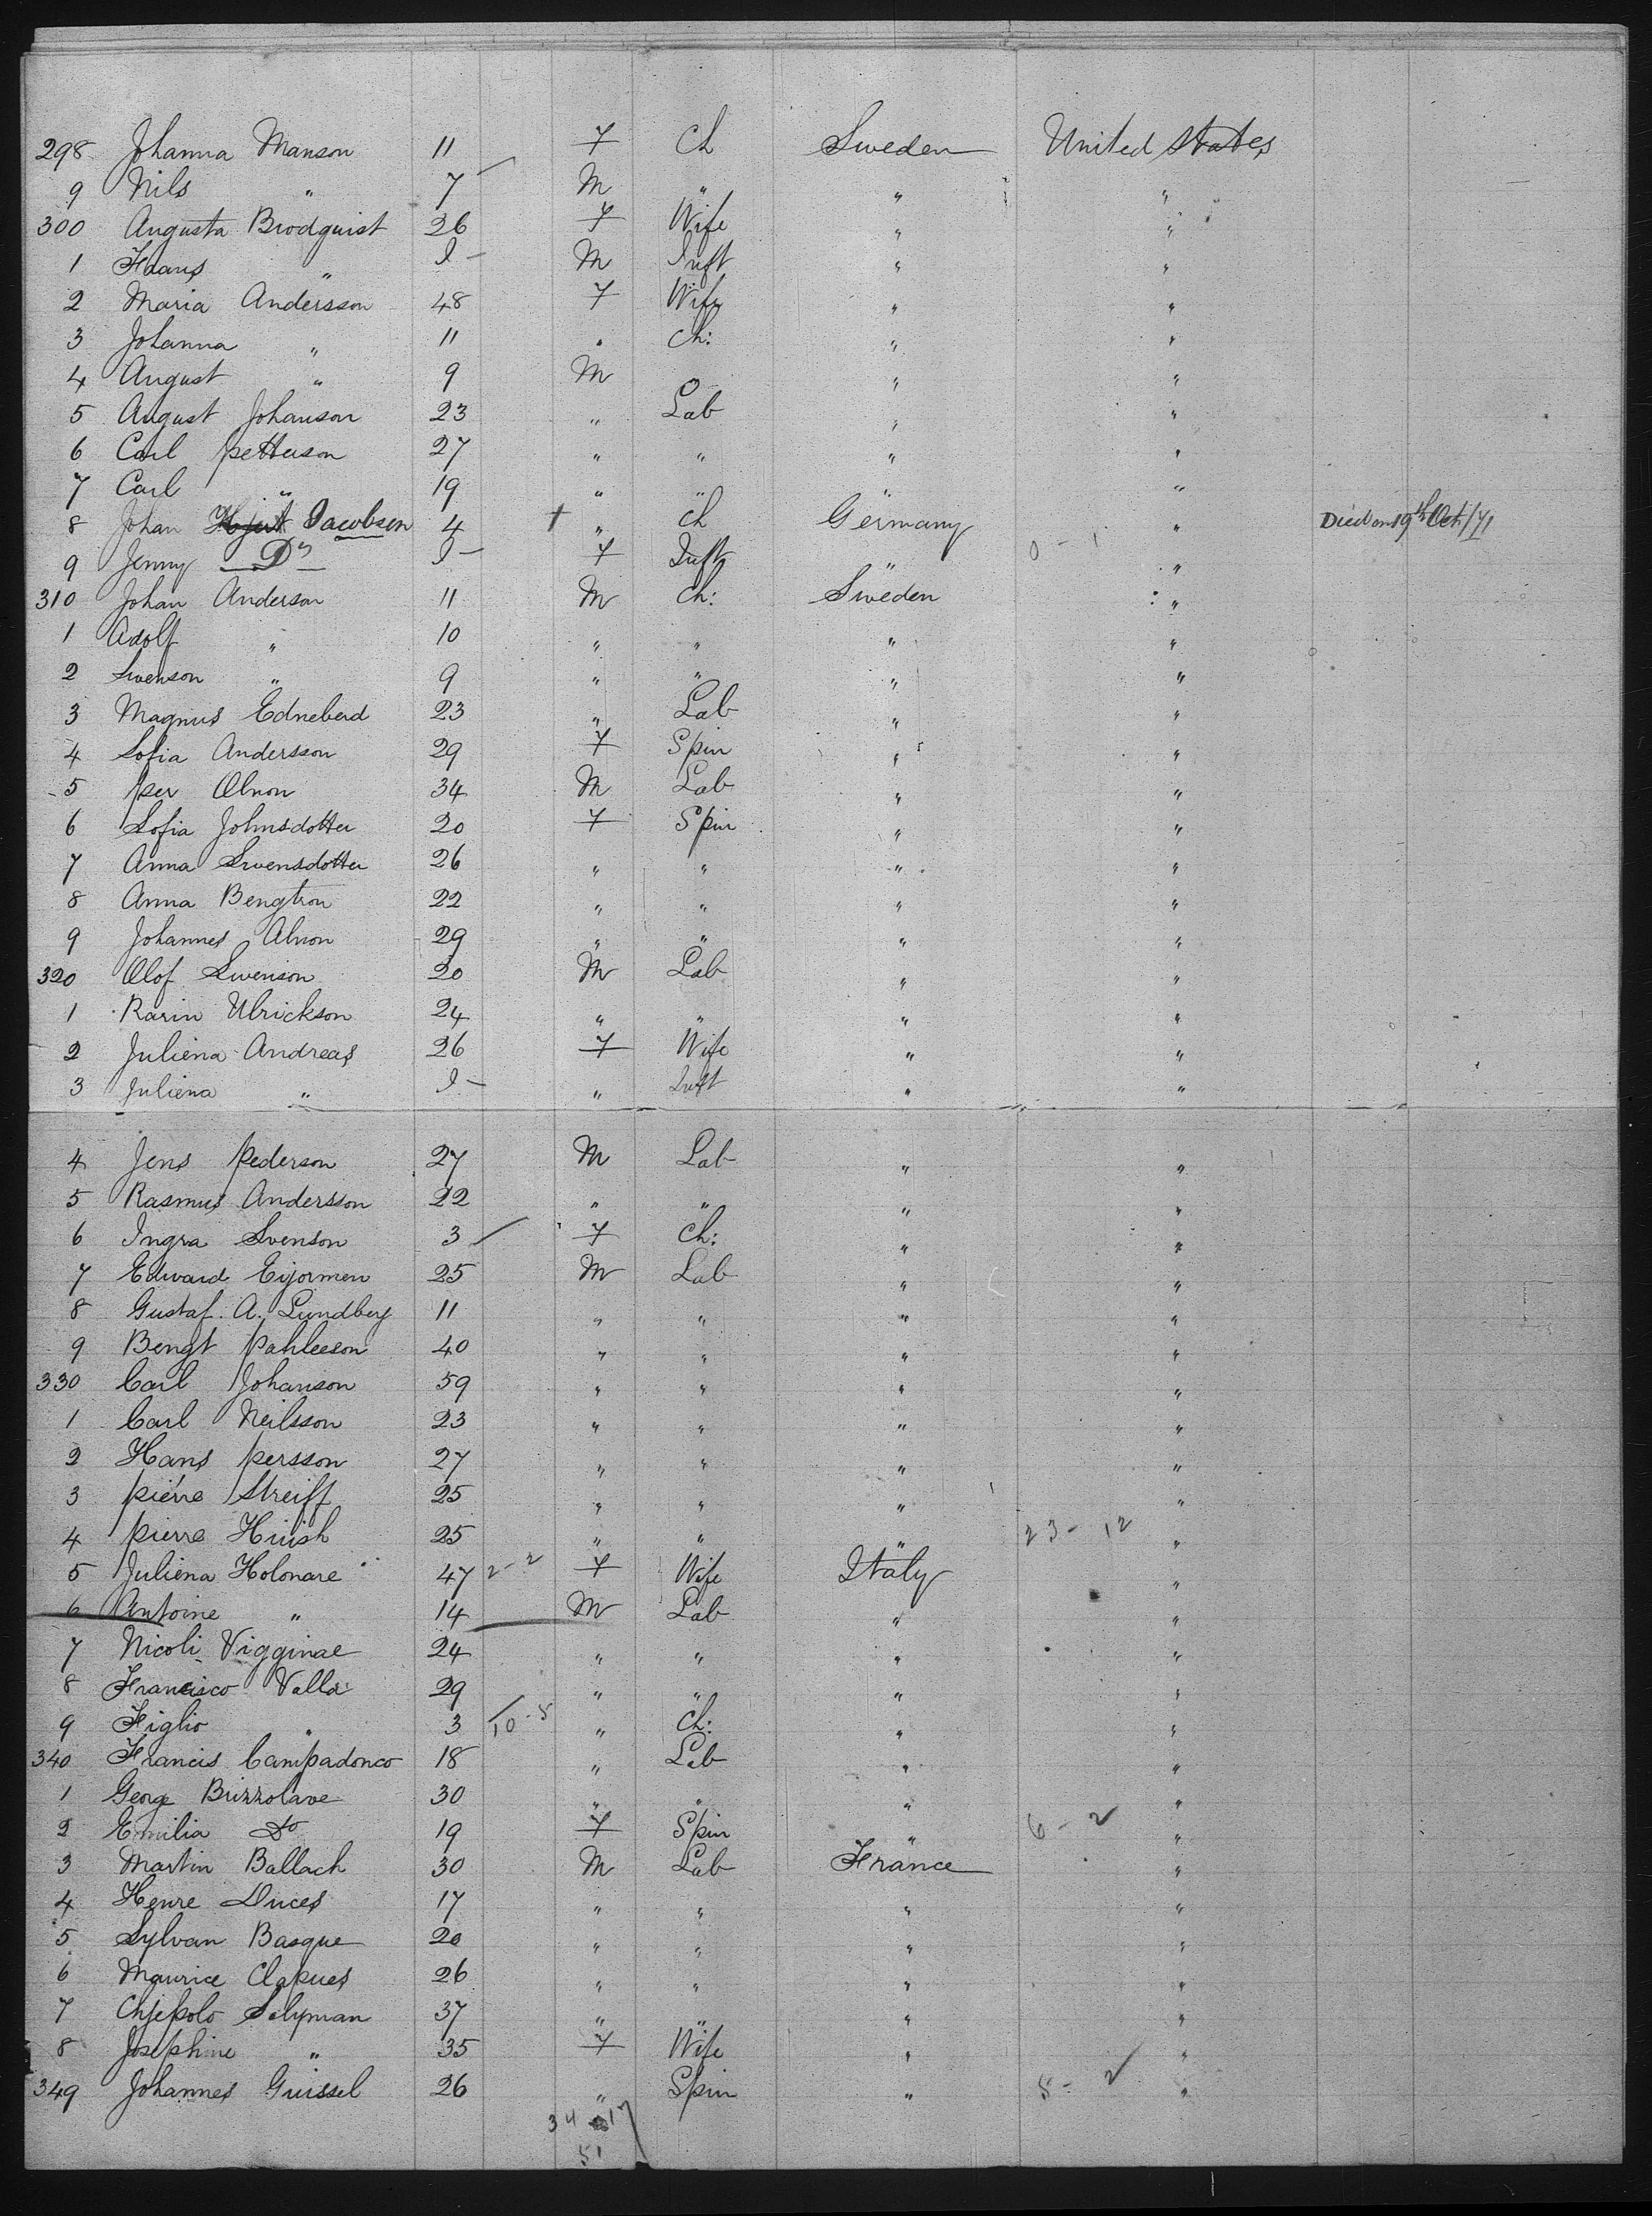 298 Johanna Manson 11 7 Ch Sweden United States
9 Nils " 7 M " " "
300 Augusta Brodquist 26 7 Wife " "
1 Haans " I - M Inft " "
2 Maria Andersson 48 7 Wife " "
3 Johanna " 11 " Ch: " "
4 August " 9 M " " "
5 August Johanson 23 " Lab " "
6 Carl Petterson 27 " " " "
7 Carl " 19 " " " "
8 Johan Jacobsen 4 + " Ch Germany " Died on 19th Oct/71
9 Jenny Do I - 7 Inft " 0 - 1 "
310 Johan Anderson 11 M Ch: Sweden "
1 Adolf " 10 " " " "
2 Swenson " 9 " " " "
3 Magnus Edneberd 23 " Lab " "
4 Sofia Andersson 29 7 Spin " "
5 Per Olnon 34 M Lab " "
6 Sofia Johnsdotter 20 7 Spin " "
7 Anna Swensdotter 26 " " " "
8 Anna Bengtson 22 " " " "
9 Johannes Alnon 29 " " " "
320 Olof Swenson 20 M Lab " "
1 Karin Ulrickson 24 " " " "
2 Juliena Andreas 26 7 Wife " "
3 Juliena " I - " Inft " "
4 Jens Pederson 27 M Lab " "
5 Rasmus Andersson 22 " " " "
6 Ingra Svenson 3 7 Ch: " "
7 Edward Eijormen 25 M Lab " "
8 Gustaf. A. Lundberg 11 " " " "
9 Bengt Pahleeson 40 " " " "
330 Carl Johanson 59 " " " "
1 Carl Neilsson 23 " " " "
2 Hans Persson 27 " " " "
3 Piérre Streiff 25 " " " "
4 Pierre Hirish 25 " " " 23 - 12 "
5 Juliena Holonare 47 2 - 2 7 Wife Italy "
6 Antoine " 14 M Lab " "
7 Nicoli Vigginae 24 " " " "
8 Francisco Valla 29 " " " "
9 Figlio " 3 10 - 5 " Ch: " "
340 Francis Campadonco 18 " Lab " "
1 George Brizzolave 30 " " " "
2 Emilia Do 19 7 Spin " 6 - 2 "
3 Martin Ballach 30 M Lab France "
4 Henre Duces 17 " " " "
5 Sylvan Basque 20 " " " "
6 Maurice Clapues 26 " " " "
7 Chjepolo Solyman 37 " " " "
8 Josephine " 35 7 Wife " "
349 Johannes Guissel 26 " Spin " 5 - 2 "
34 17
51